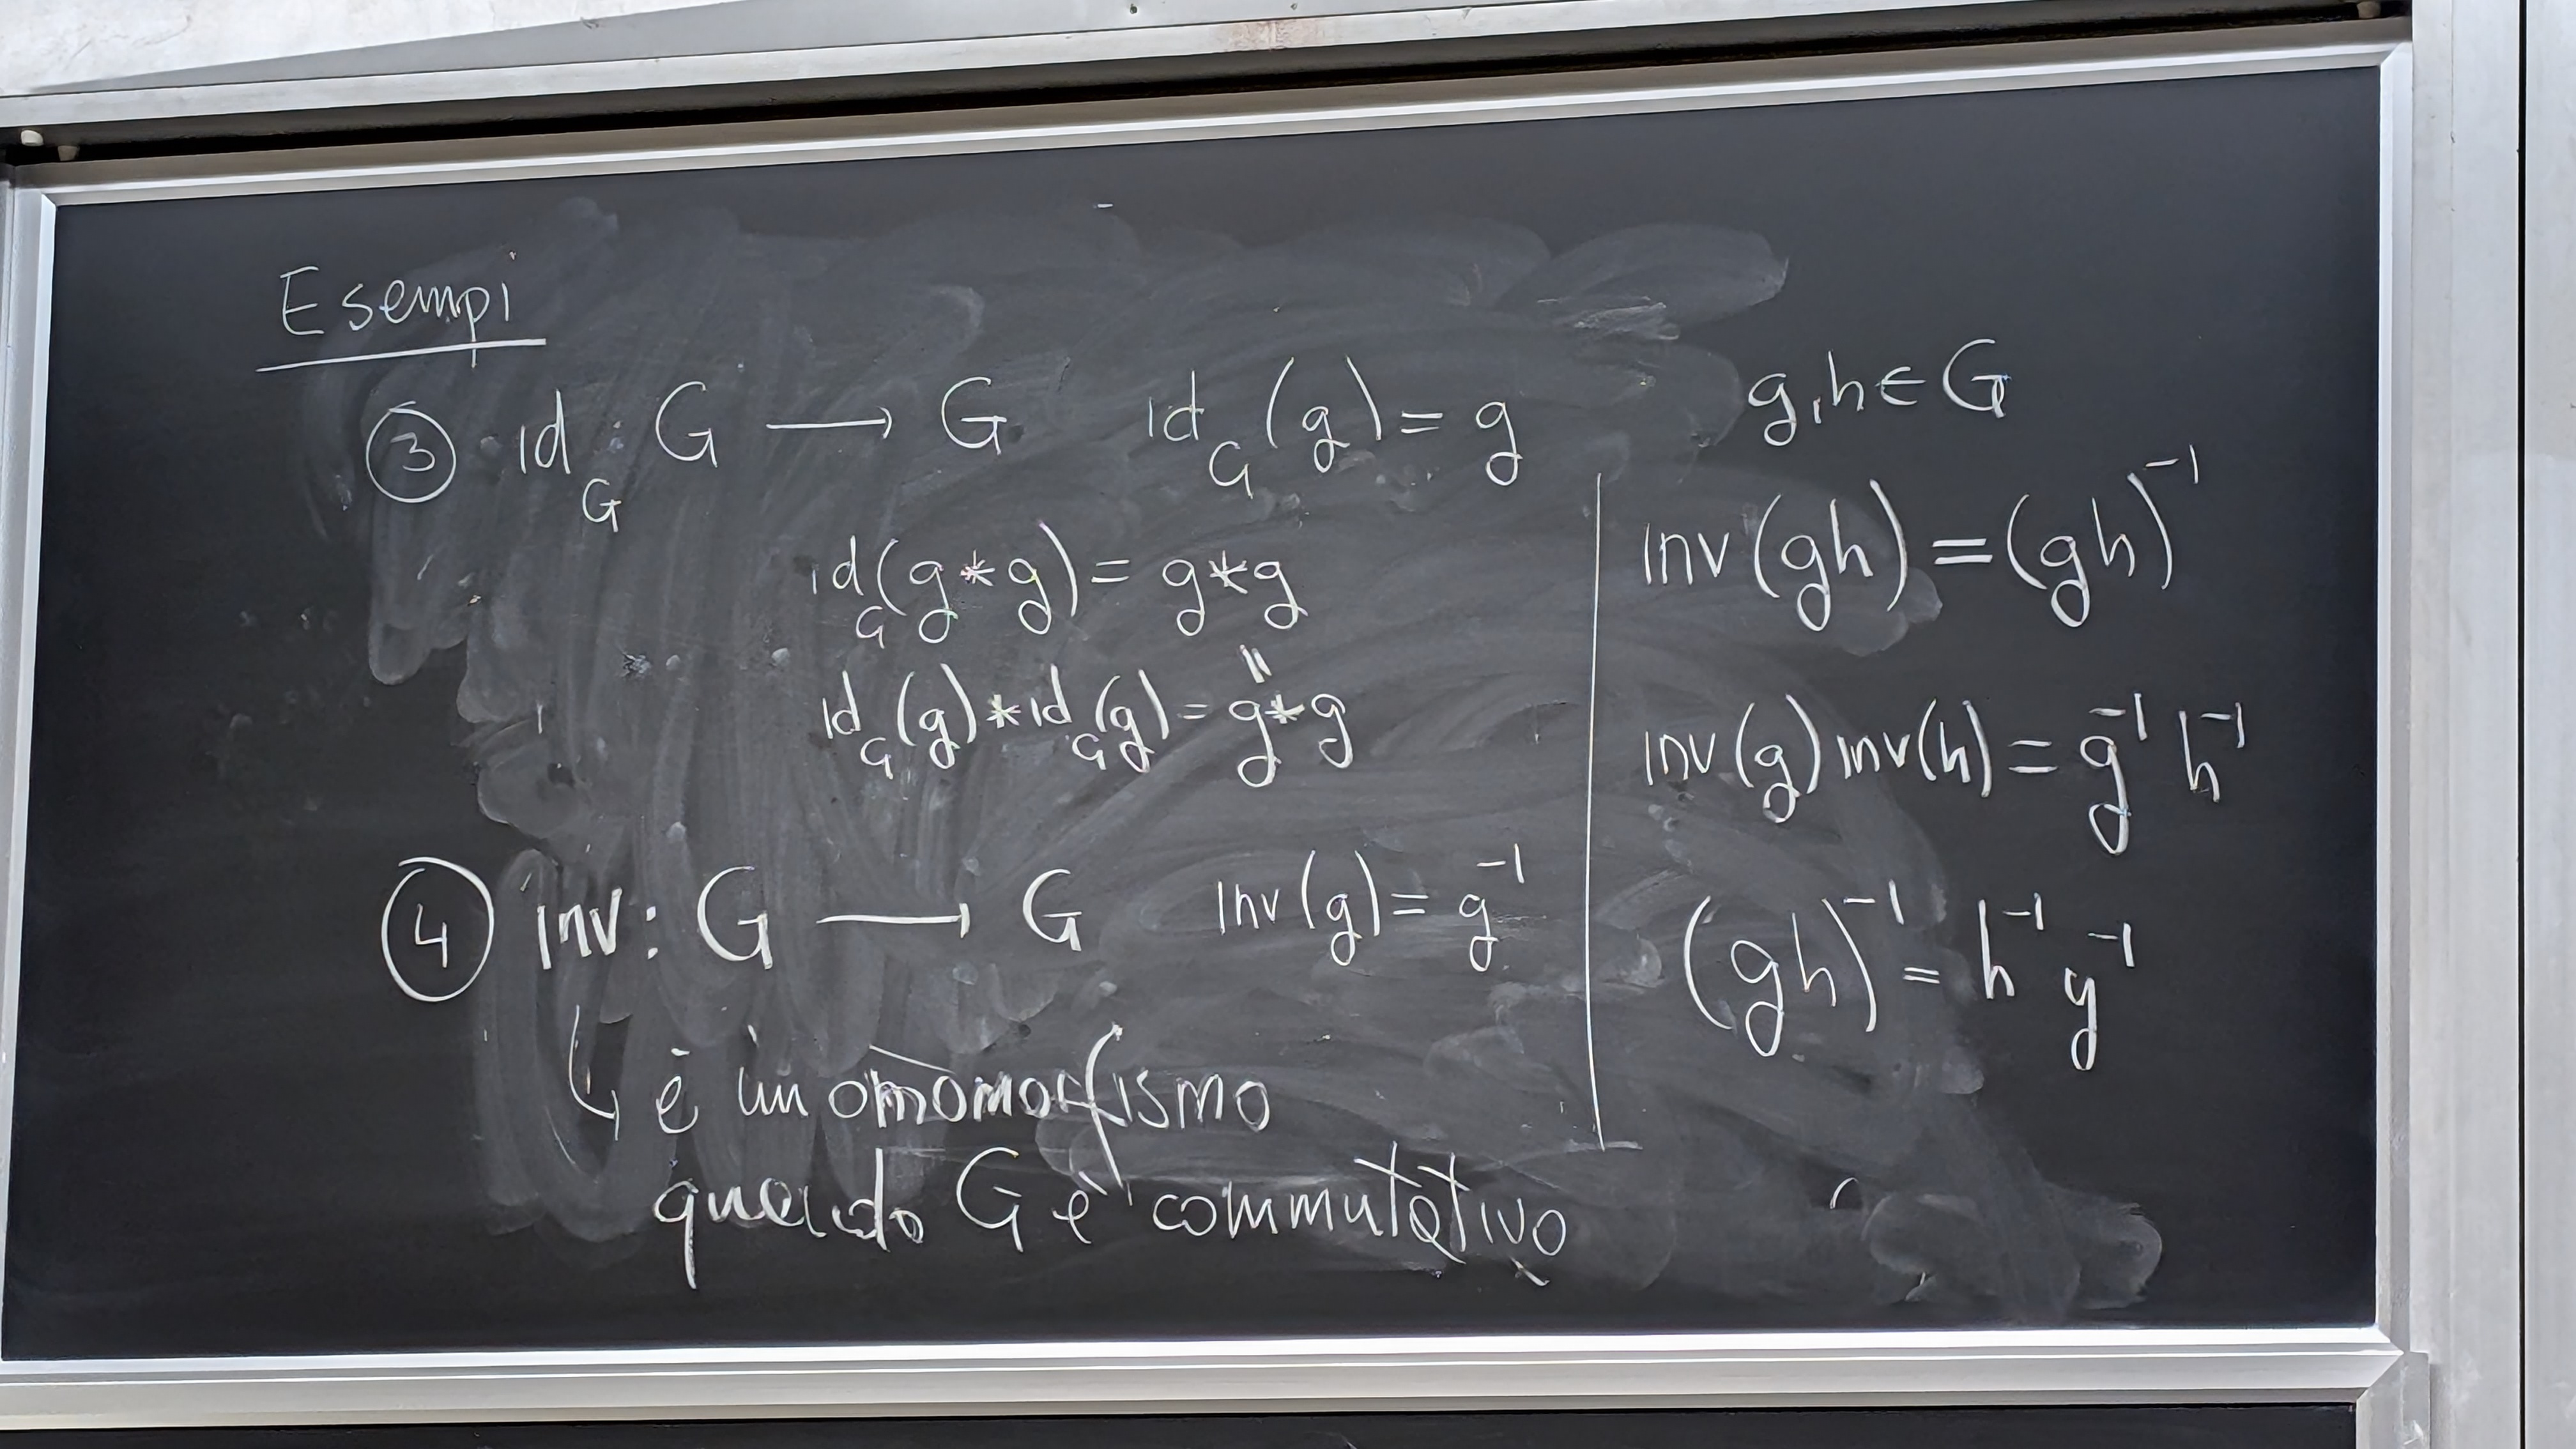 Esempi
③ id_G : G ⟶ G   id_G(g) = g
id_G(g*g) = g*g
"
id_G(g)*id_G(g) = g*g
④ inv: G ⟶ G   inv(g) = g⁻¹
↳ è un omomorfismo
quando G è commutativo
g,h∈G
inv(gh) = (gh)⁻¹
inv(g)inv(h) = g⁻¹ h⁻¹
(gh)⁻¹ = h⁻¹ g⁻¹